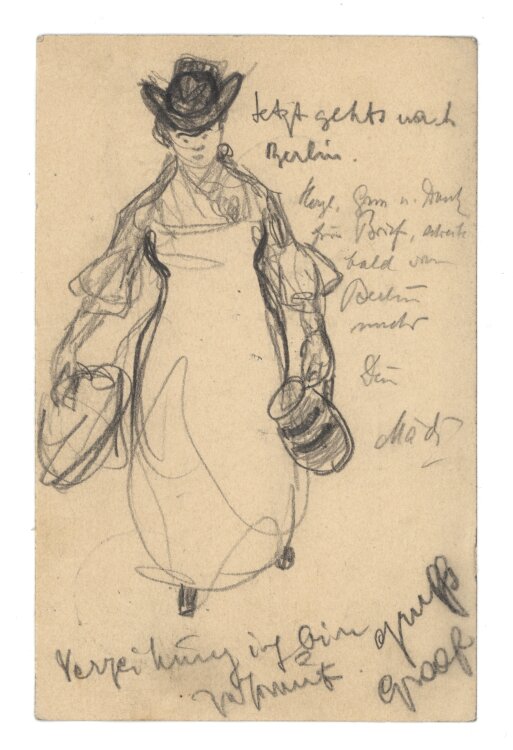 Jetzt gehts nach
Berlin.
Herzl. Gruss u. Dank
für Brief, schreibe
bald von
Berlin
mehr
Dein
Verzeihung ich bin
Gruss